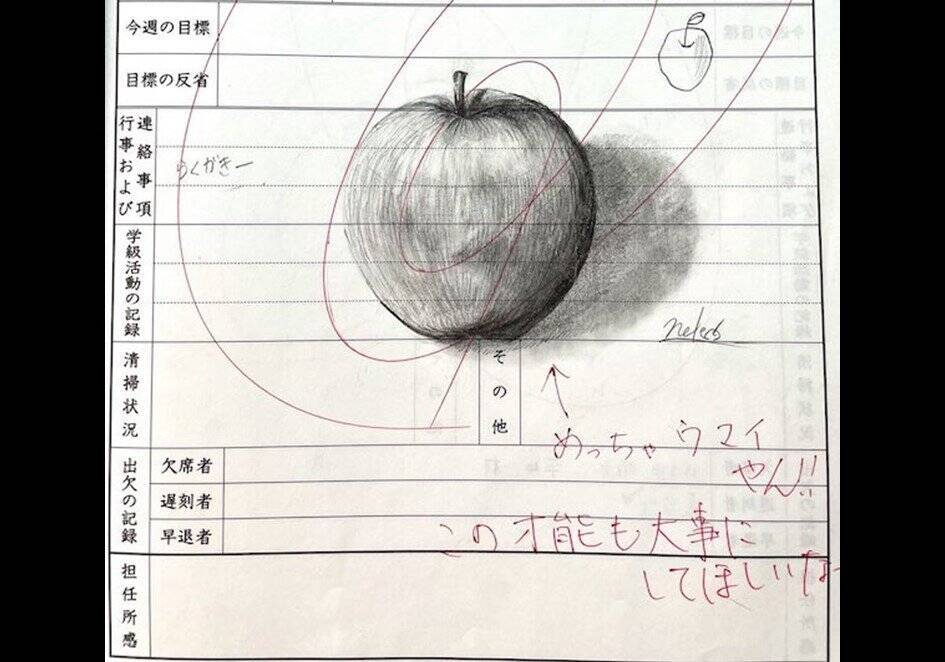 今週の目標
目標の反省
連絡事項
行事および
らくがきー
学級活動の記録
清掃状況
その他
めっちゃウマイ
やん!!
出欠の記録
欠席者
遅刻者
早退者
この才能も大事に
してほしいなー
担任所感